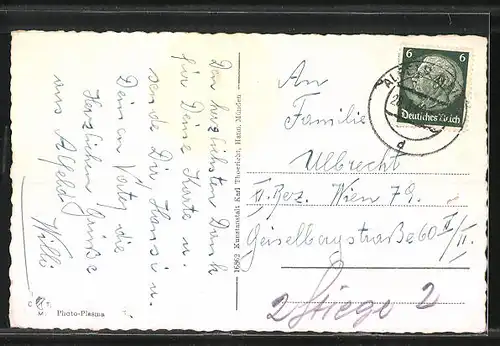 Den herzlichsten Dank
für Deine Karte u.
sende Dir, Hansi u.
Deinem Vater die
herzlichsten Grüße
aus Alfeld
Willi
16862 Kunstanstalt Karl Thoericht, Hann. Münden
Photo-Plasma
An
Familie
Ulbrecht
XI. Bez. Wien 79.
Geiselbergstraße 60 II/II.
2 Stiege 2
6 6
Deutsches Reich
d